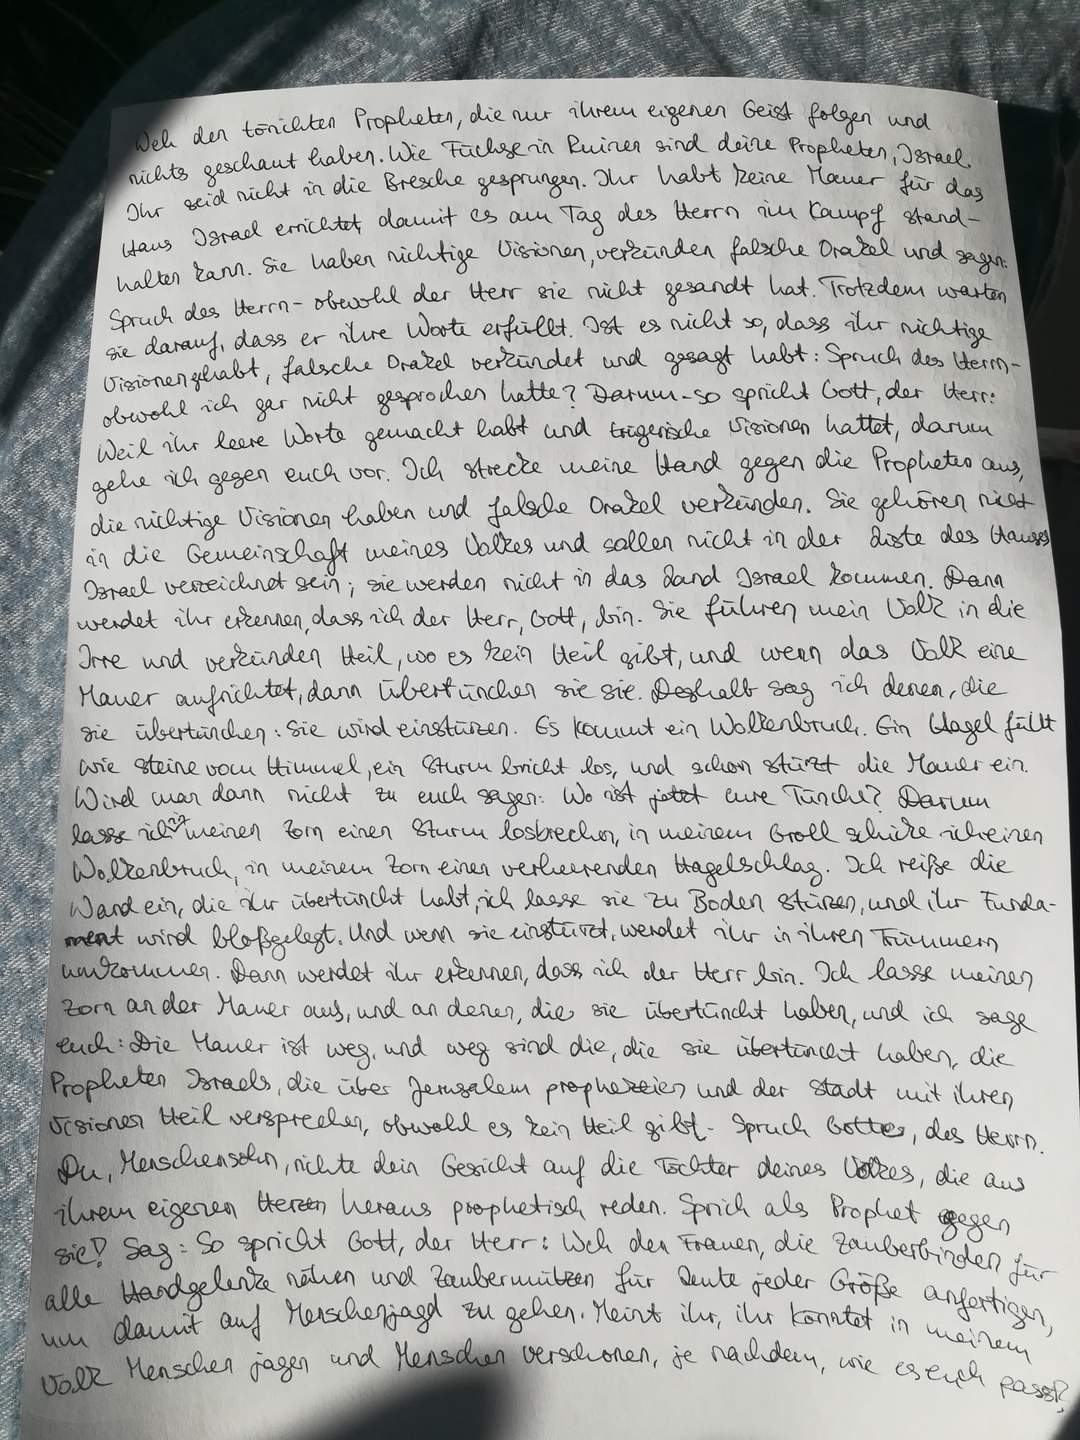 Weh den törichten Propheten, die nur ihrem eigenen Geist folgen und
nichts geschaut haben. Wie Füchse in Ruinen sind deine Propheten, Israel.
Ihr seid nicht in die Bresche gesprungen. Ihr habt keine Mauer für das
Haus Israel errichtet, damit es am Tag des Herrn im Kampf stand-
halten kann. Sie haben nichtige Visionen, verkünden falsche Orakel und sagen:
Spruch des Herrn - obwohl der Herr sie nicht gesandt hat. Trotzdem warten
sie darauf, dass er ihre Worte erfüllt. Ist es nicht so, dass ihr nichtige
Visionen gehabt, falsche Orakel verkündet und gesagt habt: Spruch des Herrn -
obwohl ich gar nicht gesprochen hatte? Darum - so spricht Gott, der Herr:
Weil ihr leere Worte gemacht habt und trügerische Visionen hattet, darum
gehe ich gegen euch vor. Ich strecke meine Hand gegen die Propheten aus,
die nichtige Visionen haben und falsche Orakel verkünden. Sie gehören nicht
in die Gemeinschaft meines Volkes und sollen nicht in der Liste des Hauses
Israel verzeichnet sein; sie werden nicht in das Land Israel kommen. Dann
werdet ihr erkennen, dass ich der Herr, Gott, bin. Sie führen mein Volk in die
Irre und verkünden Heil, wo es kein Heil gibt, und wenn das Volk eine
Mauer aufrichtet, dann übertünchen sie sie. Deshalb sag ich denen, die
sie übertünchen: Sie wird einstürzen. Es kommt ein Wolkenbruch. Ein Hagel fällt
wie Steine vom Himmel, ein Sturm bricht los, und schon stürzt die Mauer ein.
Wird man dann nicht zu euch sagen: Wo ist jetzt eure Tünche? Darum
lasse ich in meinen Zorn einen Sturm losbrechen, in meinem Groll schicke ich einen
Wolkenbruch, in meinem Zorn einen verheerenden Hagelschlag. Ich reiße die
Wand ein, die ihr übertüncht habt, ich lasse sie zu Boden stürzen, und ihr Funda-
ment wird bloßgelegt. Und wenn sie einstürzt, werdet ihr in ihren Trümmern
umkommen. Dann werdet ihr erkennen, dass ich der Herr bin. Ich lasse meinen
Zorn an der Mauer aus, und an denen, die sie übertüncht haben, und ich sage
euch: Die Mauer ist weg, und weg sind die, die sie übertüncht haben, die
Propheten Israels, die über Jerusalem prophezeien und der Stadt mit ihren
Visionen Heil versprechen, obwohl es kein Heil gibt - Spruch Gottes, des Herrn.
Du, Menschensohn, richte dein Gesicht auf die Töchter deines Volkes, die aus
ihrem eigenen Herzen heraus prophetisch reden. Sprich als Prophet gegen
sie! Sag: So spricht Gott, der Herr: Weh den Frauen, die Zauberbinden für
alle Handgelenke nähen und Zaubermützen für Leute jeder Größe anfertigen,
um damit auf Menschenjagd zu gehen. Meint ihr, ihr könntet in meinem
Volk Menschen jagen und Menschen verschonen, je nachdem, wie es euch passt?